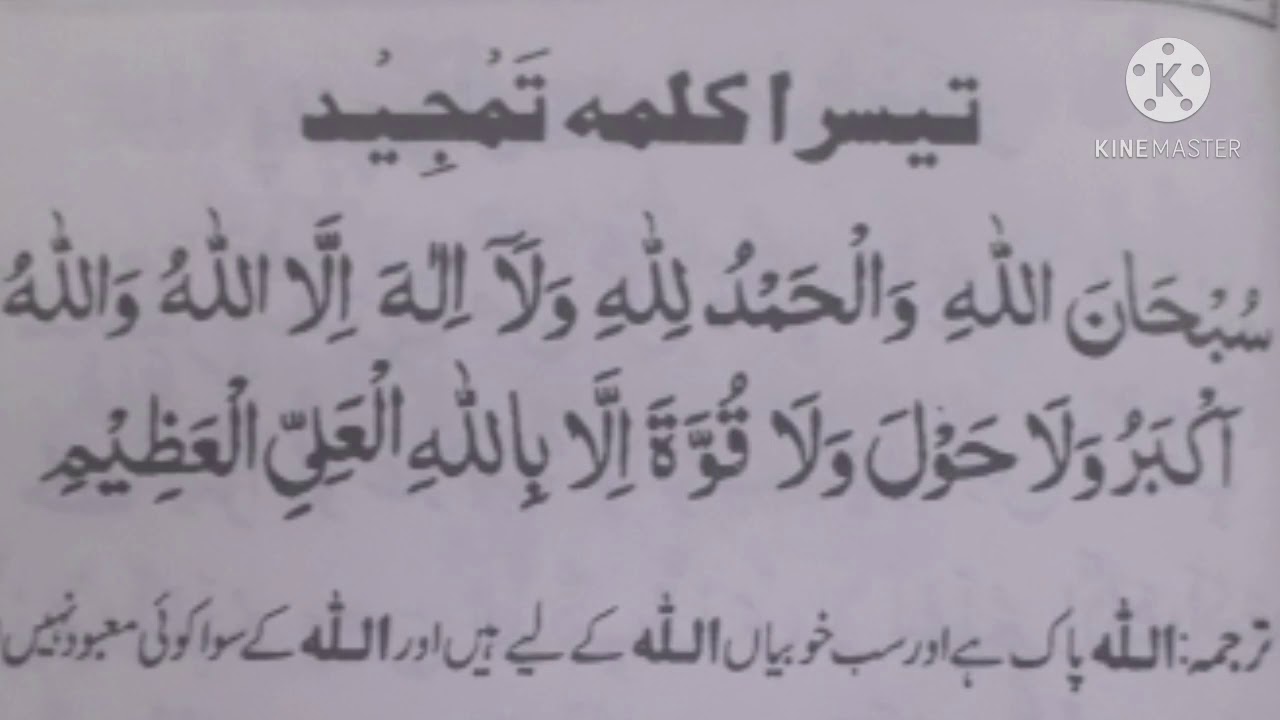 تیسرا کلمہ تَمْجِیْد
سُبْحَانَ اللّٰهِ وَالْحَمْدُ لِلّٰهِ وَلَآ اِلٰهَ اِلَّا اللّٰهُ وَاللّٰهُ
اَکْبَرُ وَلَا حَوْلَ وَلَا قُوَّةَ اِلَّا بِاللّٰهِ الْعَلِیِّ الْعَظِیْمِ
ترجمہ: اللّٰه پاک ہے اور سب خوبیاں اللّٰه کے لیے ہیں اور اللّٰه کے سوا کوئی معبود نہیں
KINEMASTER